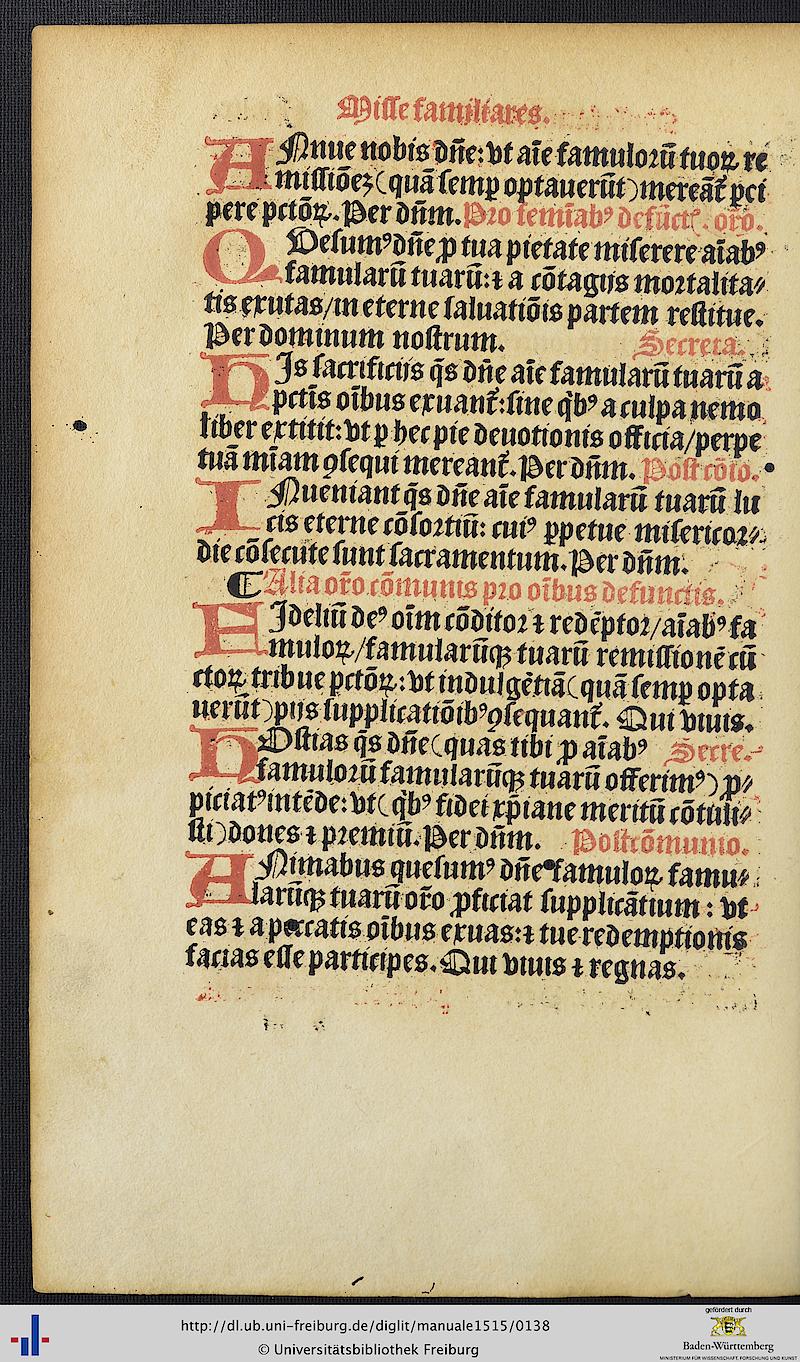 Misse familiares.
ANnue nobis dn̄e: vt aīe famuloꝛū tuoꝝ re
missiōeꝫ (quā semp optauerūt) mereāt᷑ ꝑci
pere pctōꝝ. Per dn̄m. Pro femīabꝰ defūctꝭ. oro̅.
QUesumꝰ dn̄e ꝓ tua pietate miserere aīabꝰ
famularū tuarū: ⁊ a cōtagijs moꝛtalita⸗
tis exutas/in eterne saluatiōis partem restitue.
Per dominum nostrum. Secreta.
HIs sacrificijs q̄s dn̄e aīe famularū tuarū a
pctīs oībus exuant᷑: sine qͥbꝰ a culpa nemo
liber extitit: vt ꝑ hec pie deuotionis officia/perpe
tuā mīam ꝯsequi mereant᷑. Per dn̄m. Post cōio.
INueniant q̄s dn̄e aīe famularū tuarū lu
cis eterne cōsoꝛtiū: cuiꝰ ꝑpetue misericoꝛ⸗
die cōsecute sunt sacramentum. Per dn̄m.
¶ Alia oro̅ cōmunis pꝛo oībus defunctis.
FIdeliū deꝰ oīm cōditoꝛ ⁊ redēptoꝛ/aīabꝰ fa
muloꝝ/famularūqꝫ tuarū remissionē cū
ctoꝝ tribue pctōꝝ: vt indulgētiā (quā semp opta
uerūt) pijs supplicatiōibꝰ ꝯsequant᷑. Qui viuis.
HOstias q̄s dn̄e (quas tibi ꝓ aīabꝰ Secre.
famuloꝛū famularūqꝫ tuarū offerimꝰ) ꝓ⸗
piciatꝰ intēde: vt (qͥbꝰ fidei xp̄iane meritū cōtuli⸗
sti) dones ⁊ pꝛemiū. Per dn̄m. Postcōmunio.
ANimabus quesumꝰ dn̄e famuloꝝ famu⸗
larūqꝫ tuarū oro̅ ꝓficiat supplicātium: vt
eas ⁊ a peccatis oībus exuas: ⁊ tue redemptionis
facias esse participes. Qui viuis ⁊ regnas.
http://dl.ub.uni-freiburg.de/diglit/manuale1515/0138
© Universitätsbibliothek Freiburg
gefördert durch
Baden-Württemberg
MINISTERIUM FÜR WISSENSCHAFT, FORSCHUNG UND KUNST